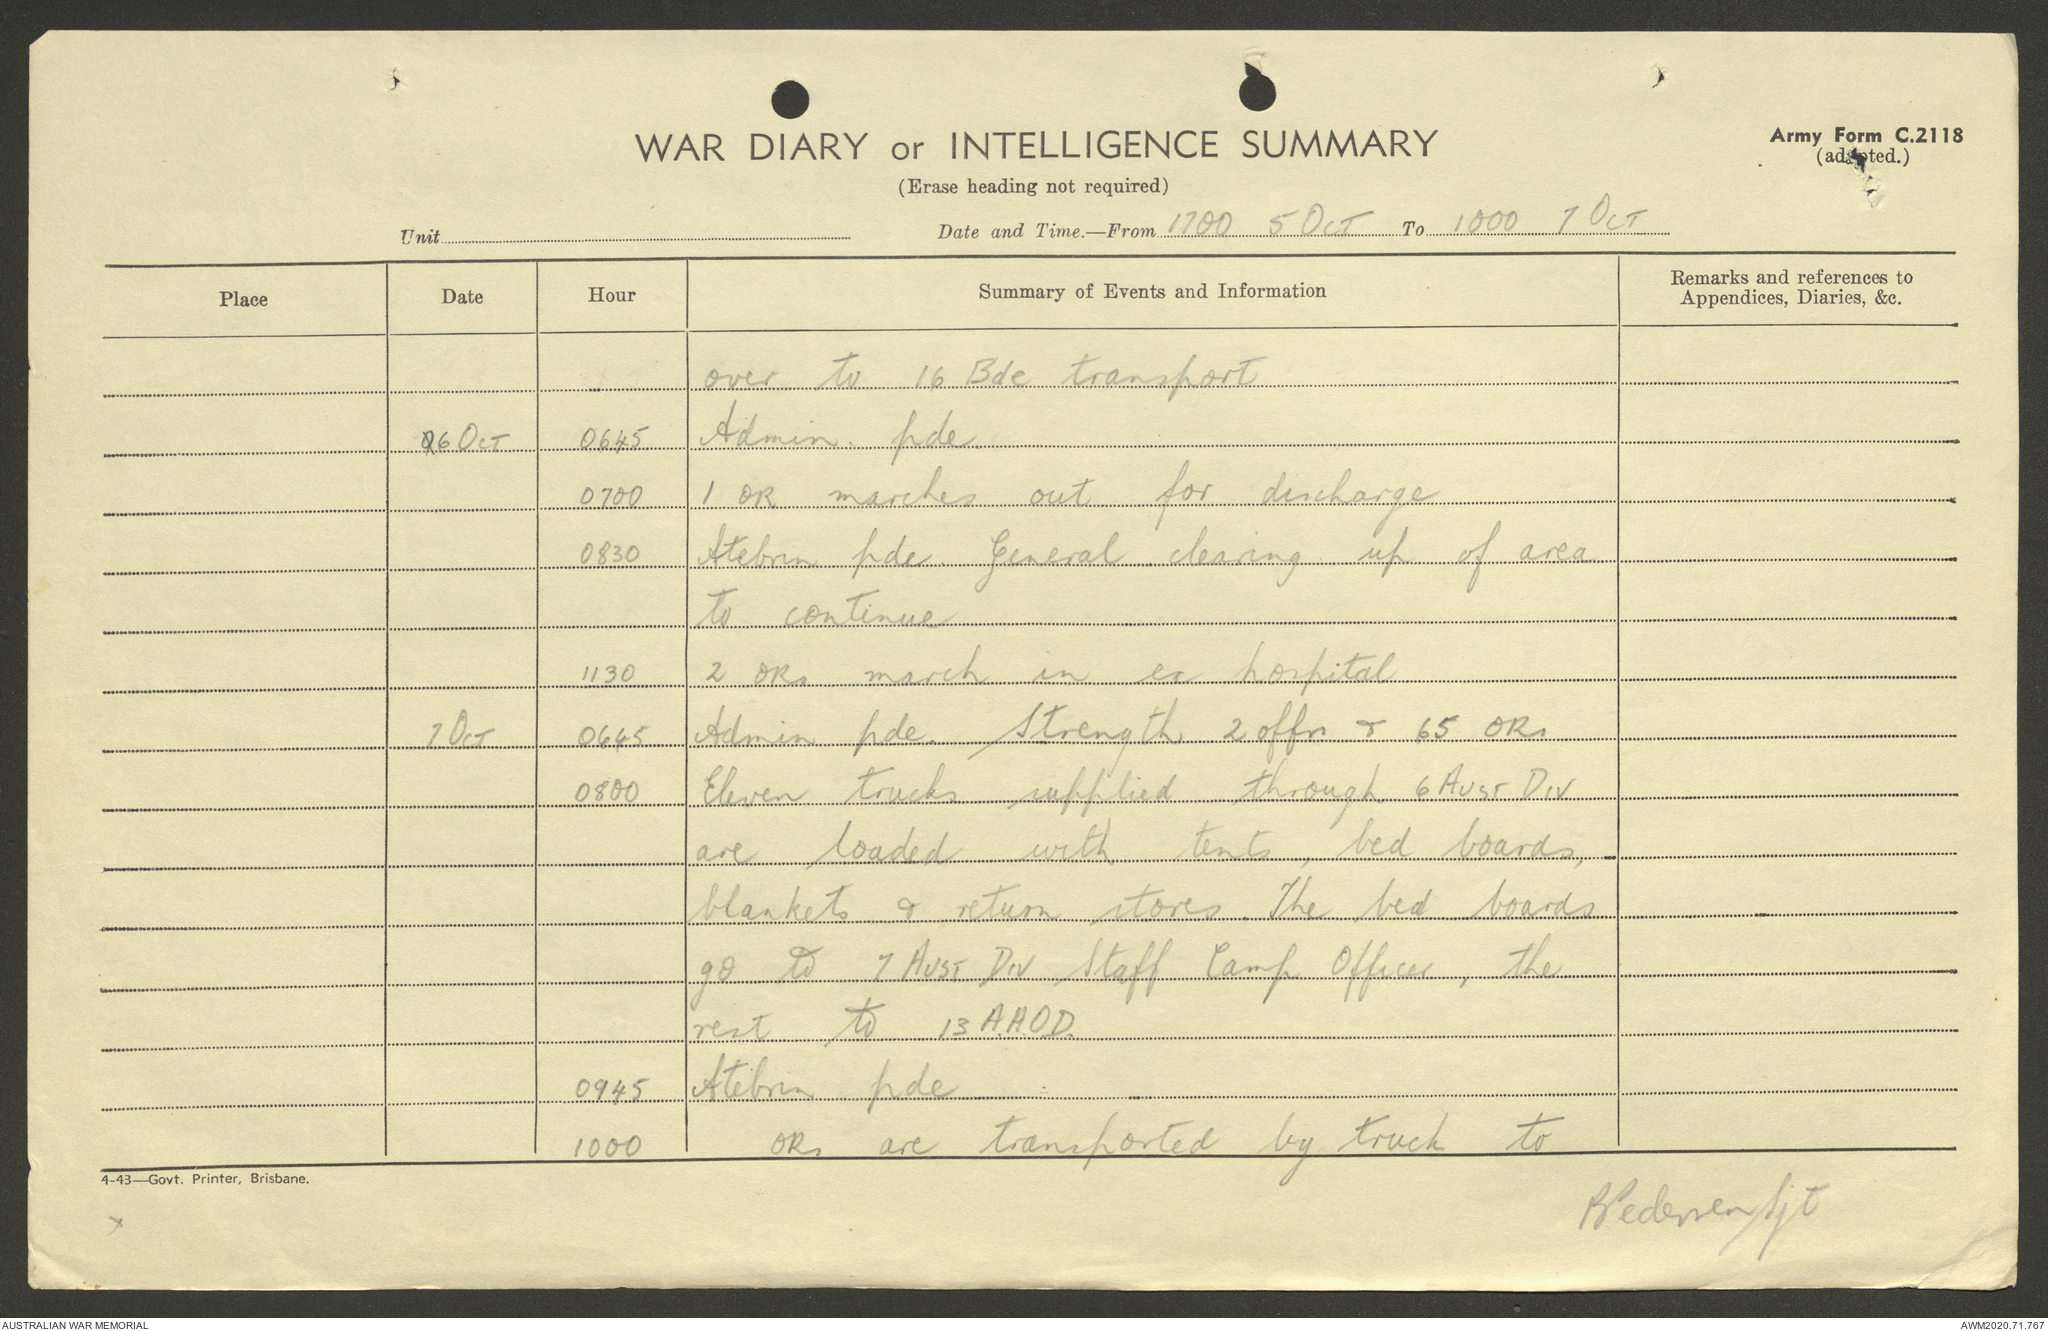 WAR DIARY or INTELLIGENCE SUMMARY
Army Form C.2118
(adapted.)
(Erase heading not required)
Unit Date and Time.—From 1700 5 Oct To 1000 7 Oct
Place Date Hour Summary of Events and Information Remarks and references to Appendices, Diaries, &c.
over to 16 Bde transport
06 Oct 0645 Admin. pde
0700 1 OR marches out for discharge
0830 Atebrin pde. General clearing up of area
to continue
1130 2 ORs march in ex hospital
7 Oct 0645 Admin pde. Strength 2 offrs & 65 ORs
0800 Eleven trucks supplied through 6 Aust Div
are loaded with tents, bed boards,
blankets & return stores. The bed boards
go to 7 Aust Div Staff Camp Officer, the
rest to 13 A.A.O.D.
0945 Atebrin pde
1000 ORs are transported by truck to
4-43—Govt. Printer, Brisbane.
Pedersen Sjt
AUSTRALIAN WAR MEMORIAL
AWM2020.71.767